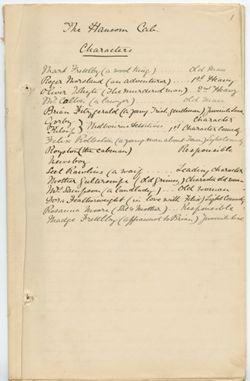 1
The Hansom Cab.
Characters
Mark Frettlby (a wool king) .... Old Man
Roger Moreland (an adventurer) ... 1st Heavy
Oliver Whyte (The murdered man) ... 2nd Heavy
Mr Calton (a lawyer) Old Man
Brian Fitzgerald (a young Irish gentleman) Juvenile lead
Gorby } Melbourne detectives Character
Kilsip } 1st Character Comedy
Felix Rolleston (a young man about town) Light Comedy
Royston (the cabman) Responsible
Newsboy
Sal Rawlins (a waif) ... Leading character
Mother Guttersnipe (Old granny) Character old woman
Mrs Sampson (a landlady) ... Old woman
Dora Featherweight (in love with Felix) Light Comedy
Rosanna Moore (Sal's Mother) ... Responsible
Madge Frettlby (affianced to Brian) Juvenile lead